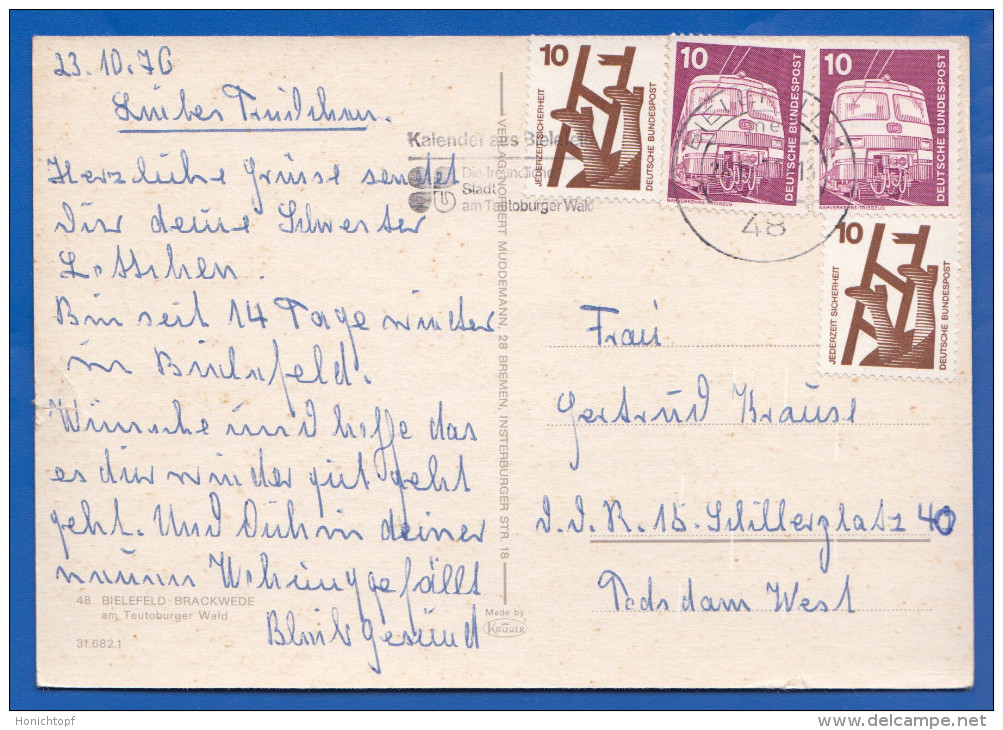 23.10.76
Liebes Trudchen.
Herzliche Grüsse sendet
Dir deine Schwester
Lottchen.
Bin seit 14 Tage wieder
in Bielefeld.
Wünsche und hoffe das
es dir wieder gut geht
geht. Und Dich in deiner
neuen Wohnung gefällt
Bleib Gesund
48 BIELEFELD-BRACKWEDE
am Teutoburger Wald
31.682.1
Made by
KRÜGER
VERLAG NORBERT MUDDEMANN, 28 BREMEN, INSTERBURGER STR. 18
Kalender aus Bielefeld
Die freundliche
Stadt
am Teutoburger Wald
10
JEDERZEIT SICHERHEIT
DEUTSCHE BUNDESPOST
10
DEUTSCHE BUNDESPOST
NAHVERKEHRS-TRIEBZUG
10
DEUTSCHE BUNDESPOST
NAHVERKEHRS-TRIEBZUG
48
10
JEDERZEIT SICHERHEIT
DEUTSCHE BUNDESPOST
Frau
Gertrud Krause
D.D.R. 15. Schillerplatz 40
Podsdam West
Honichtopf
delcampe.net